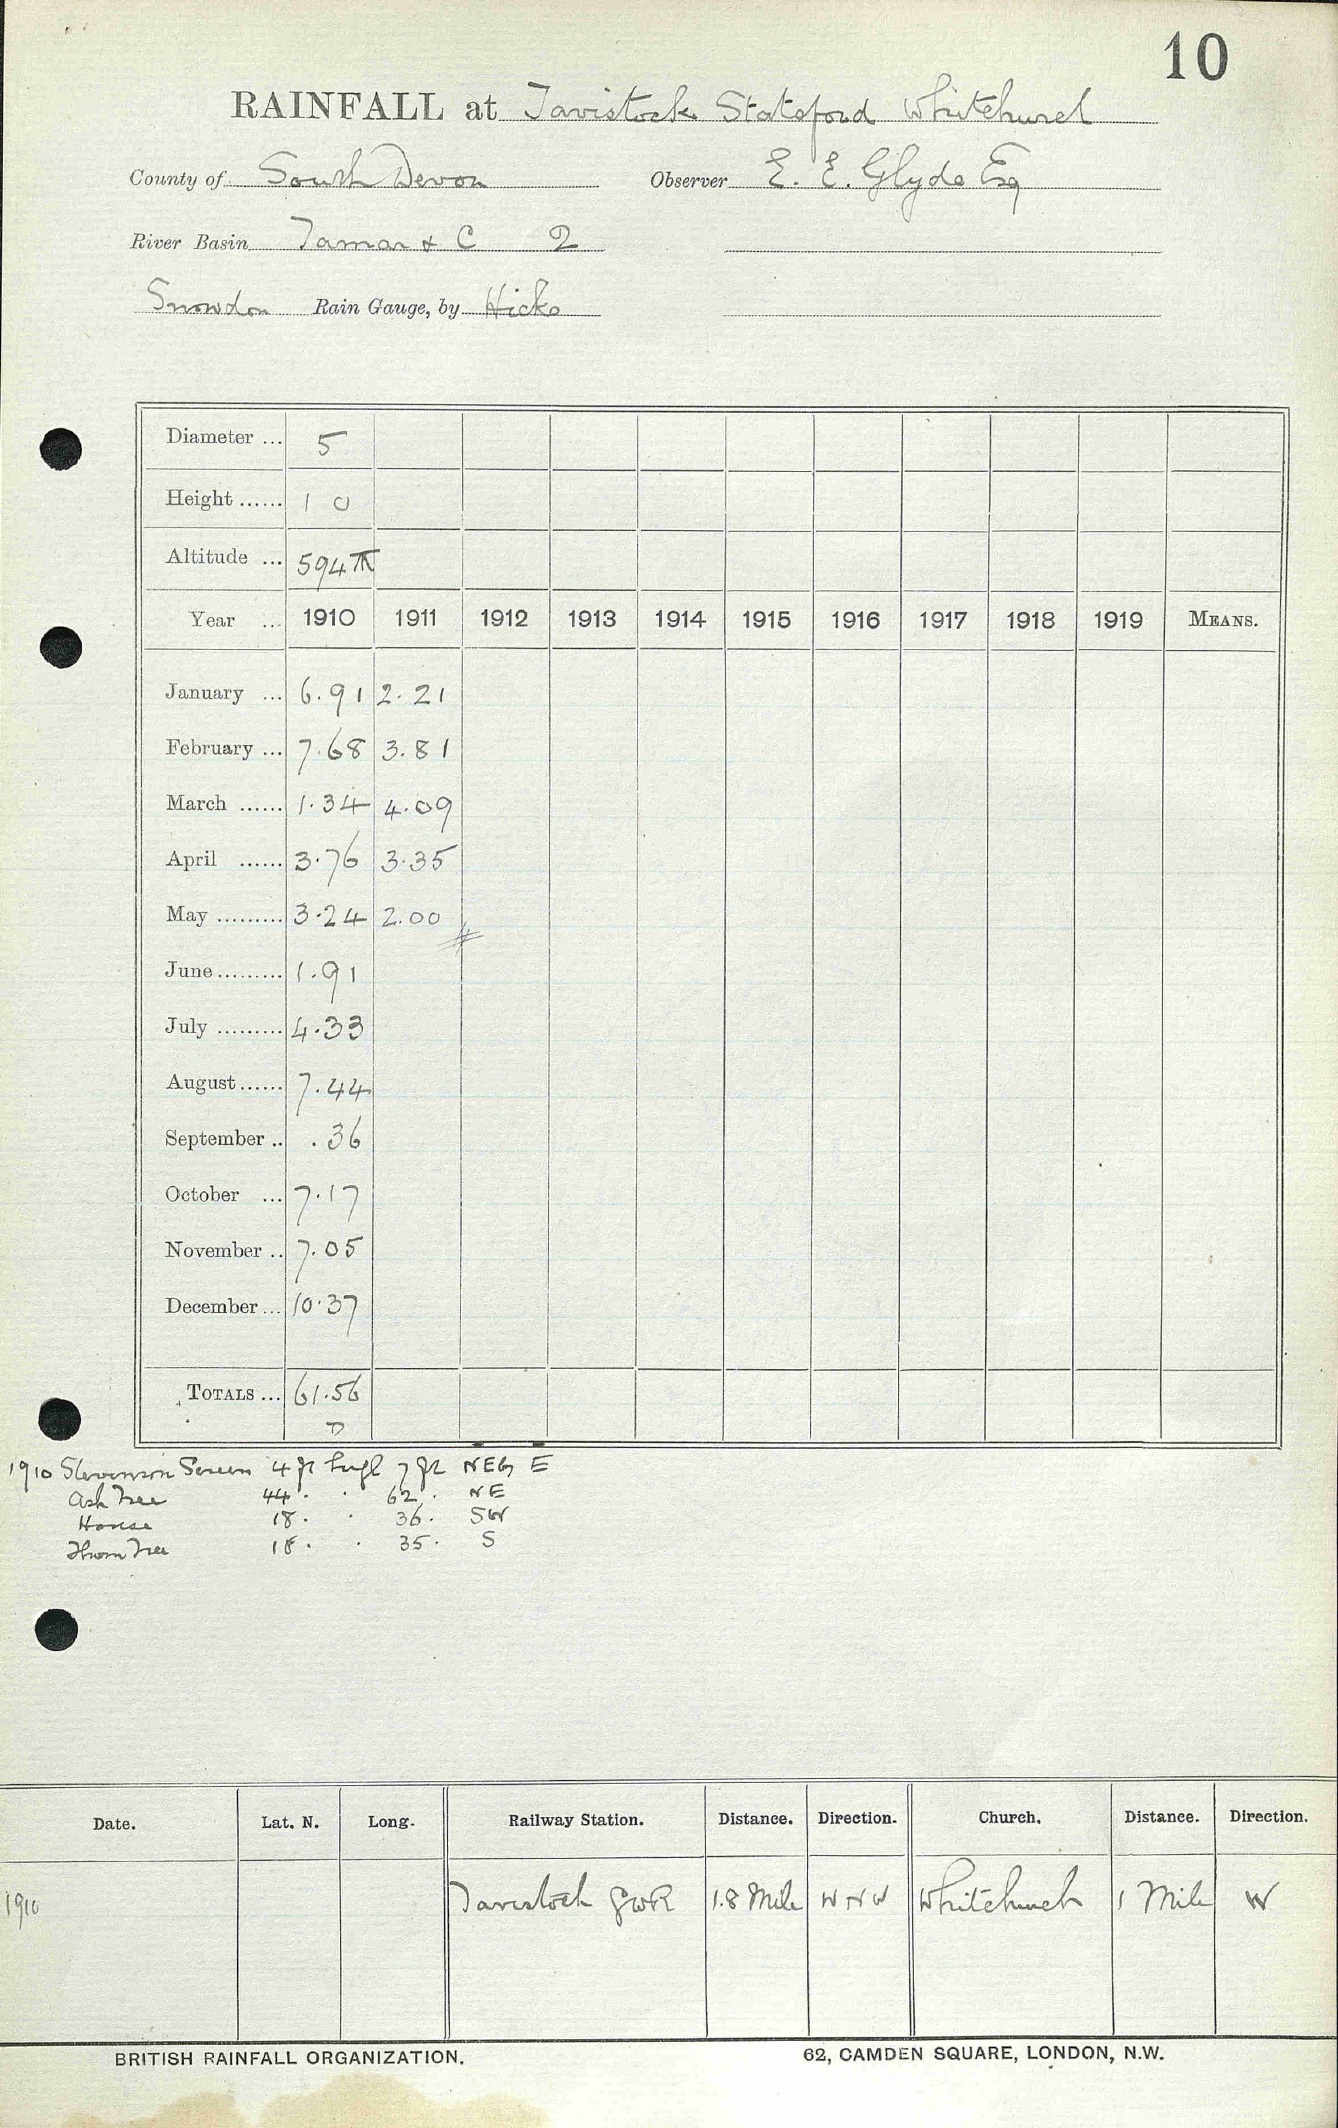 10
RAINFALL at Tavistock Statsford Whitchurch
County of South Devon Observer E. E. Glyde Esq
River Basin Tamar & C 2
Snowdon Rain Gauge, by Hicks
Diameter ... 5
Height ...... 1 0
Altitude ... 594
Year ... 1910 1911 1912 1913 1914 1915 1916 1917 1918 1919 MEANS.
January ... 6.91 2.21
February ... 7.68 3.81
March ...... 1.34 4.09
April ...... 3.76 3.35
May ......... 3.24 2.00
June ......... 1.91
July ......... 4.33
August ...... 7.44
September .. .36
October ... 7.17
November .. 7.05
December ... 10.37
TOTALS ... 61.56
D
1910 Stevenson Screen 4 ft high 7 ft NE by E
Ash Tree 44 . . 62 . NE
House 18 . . 36 . SW
Thorn Tree 18 . . 35 . S
Date. Lat. N. Long. Railway Station. Distance. Direction. Church. Distance. Direction.
1910 Tavistock GWR 1.8 Mile WNW Whitchurch 1 Mile W
BRITISH RAINFALL ORGANIZATION. 62, CAMDEN SQUARE, LONDON, N.W.